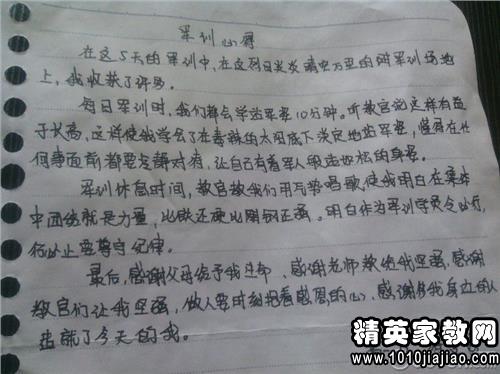 军训心得
在这5天的军训中,在这烈日炎炎晴空万里的军训场地
上,我收获了许多。
每日军训时,我们都会学站军姿10分钟。听教官说这样有益
于长高,这样使我学会了在毒辣的太阳底下淡定地站军姿,懂得在任
何事面前都要发静对待,让自己有着军人般的身姿。
军训休息时间,教官教我们用气势唱歌使我明白在集体
中团结就是力量,比铁还硬比刚钢还强。明白作为军训学员令必行,
何必止要尊守纪律。
最后,感谢父母给予我生命、感谢老师教给我坚强,感谢
教官们让我坚强,做人要时刻抱着感恩的心,感谢我身边的人
造就了今天的我。
精英家教网
www.1010jiajiao.com